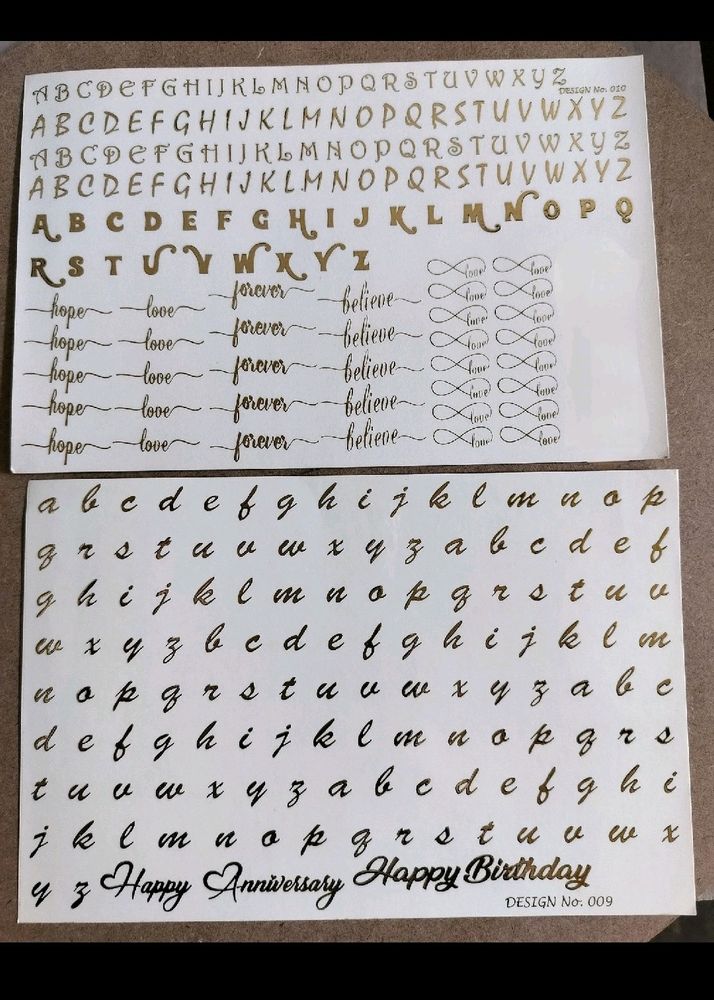 ABCDEFGHIJKLMNOPQRSTUVWXYZ
DESIGN No. 010
ABCDEFGHIJKLMNOPQRSTUVWXYZ
ABCDEFGHIJKLMNOPQRSTUVWXYZ
ABCDEFGHIJKLMNOPQRSTUVWXYZ
A B C D E F G H I J K L M N O P Q
R S T U V W X Y Z love love
hope love forever believe love love
love love
hope love forever believe love love
hope love forever believe love love
hope love forever believe love love
hope love forever believe love love
a b c d e f g h i j k l m n o p
q r s t u v w x y z a b c d e f
g h i j k l m n o p q r s t u v
w x y z b c d e f g h i j k l m
n o p q r s t u v w x y z a b c
d e f g h i j k l m n o p q r s
t u v w x y z a b c d e f g h i
j k l m n o p q r s t u v w x
y z Happy Anniversary Happy Birthday
DESIGN No. 009